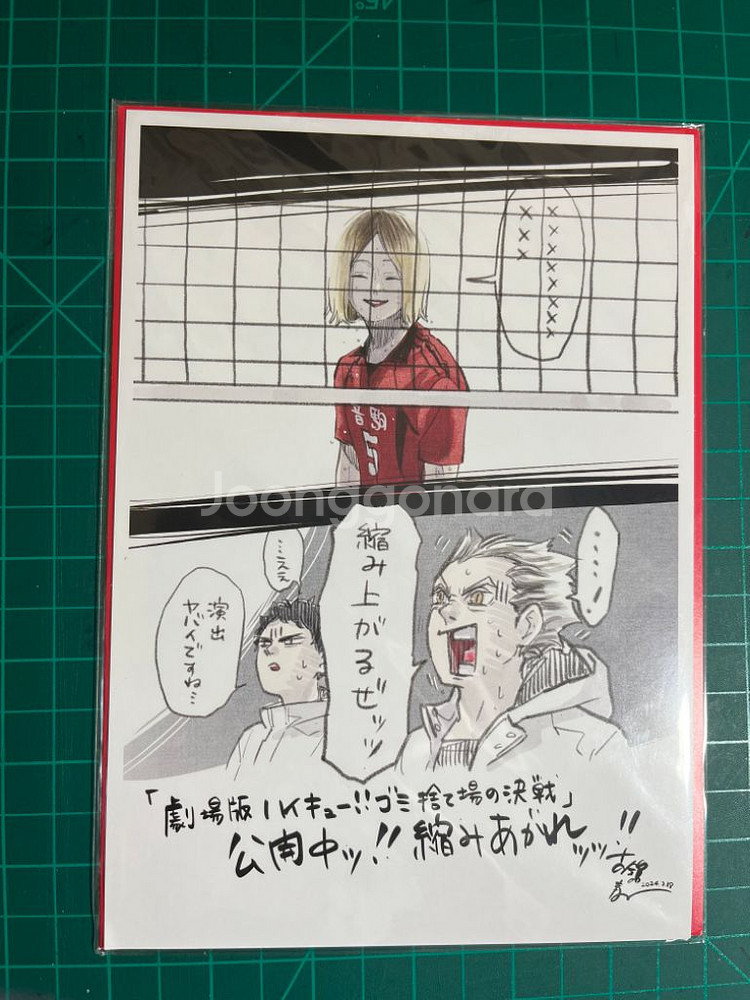 ××××××××
×××
音駒
5
Joonggonara
・・・・・!
縮み上がるぜッッ
…ええ
演出
ヤバイですね…
「劇場版ハイキュー!!ゴミ捨て場の決戦」
公開中ッ!!縮みあがれッッッ!!
古舘
2024.3.18
45°